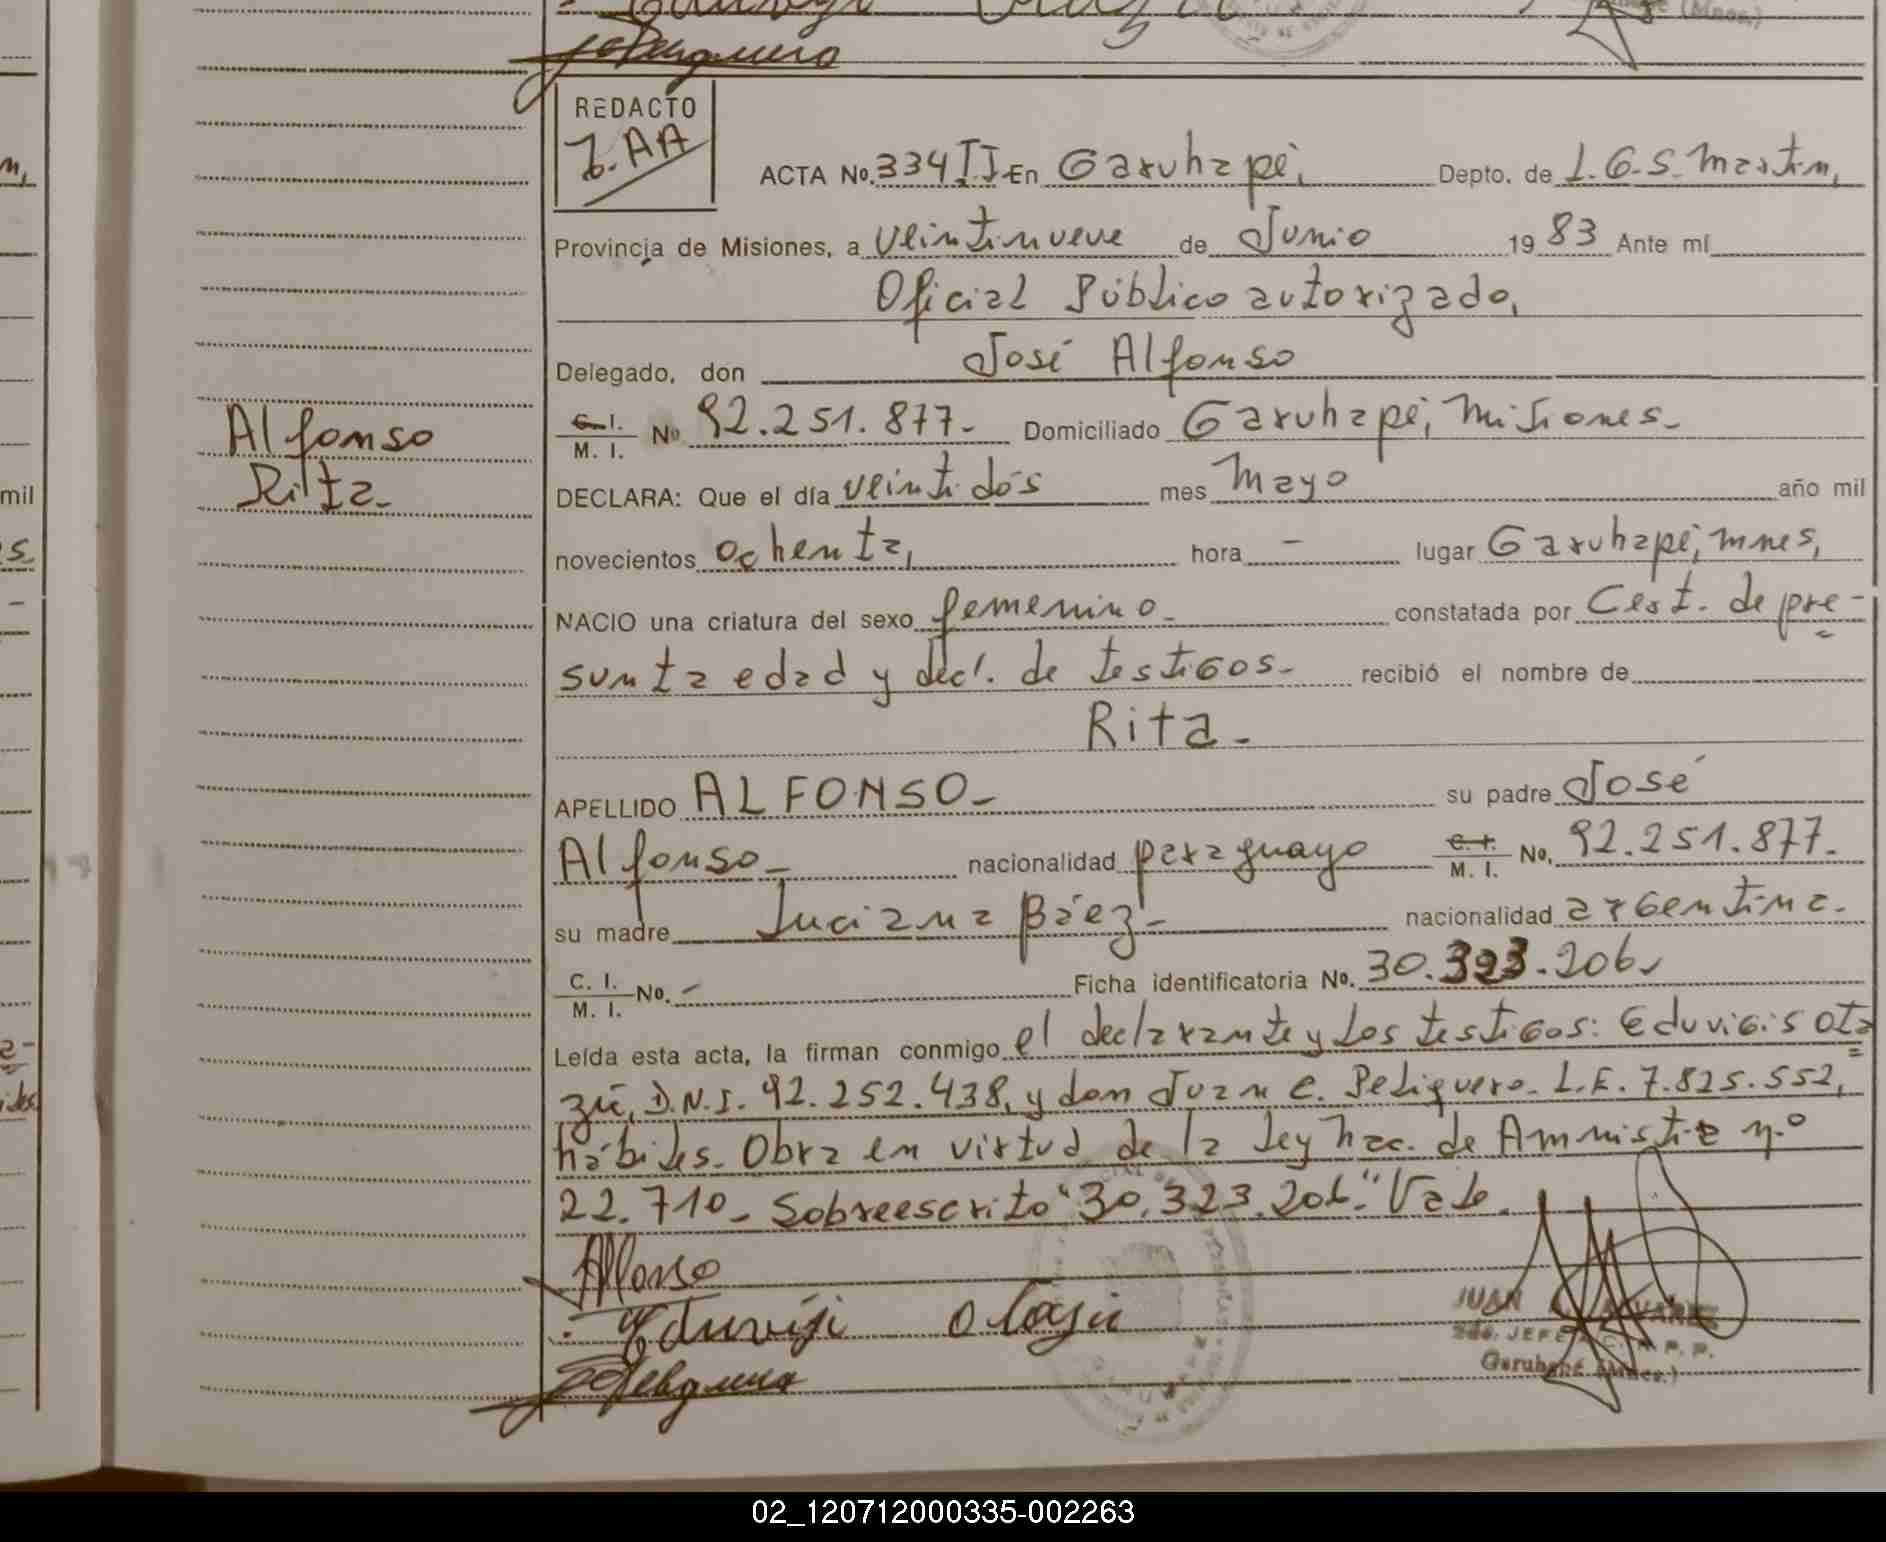 REDACTO
J.AA
ACTA No. 334 II En Garuhapé, Depto. de L.G.S. Martin,
Provincia de Misiones, a veintinueve de Junio 19 83 Ante mí
Oficial Público autorizado,
Delegado, don José Alfonso
C.I. M. I. No 92.251.877- Domiciliado Garuhapé, Misiones-
Alfonso
Rita-
DECLARA: Que el día veintidós mes Mayo año mil
novecientos ochenta, hora - lugar Garuhapé, Mnes,
NACIO una criatura del sexo femenino- constatada por Cert. de pre-
sunta edad y decl. de testigos- recibió el nombre de
Rita-
APELLIDO ALFONSO- su padre José
Alfonso- nacionalidad paraguayo C. I. M. I. No. 92.251.877-
su madre Luciana Báez- nacionalidad argentina-
C. I. M. I. No. - Ficha identificatoria No. 30.323.206-
Leída esta acta, la firman conmigo el declarante y los testigos: Eduvigis Ota
zú, D.N.I. 92.252.438, y don Juan C. Peliquero- L.E. 7.825.552,
hábiles. Obra en virtud de la Ley Nac. de Amnistia n.º
22.710- Sobreescrito "30.323.206-" Vale.
Alfonso
Eduviji Otazu
JUAN ALVAREZ
2do. JEFE
Garuhapé (Mnes.)
mil
02_120712000335-002263